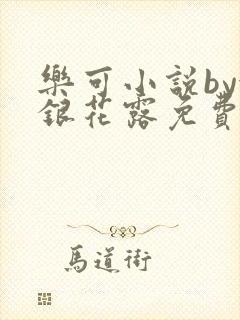 樂可小説by
銀花露免費
馬道術